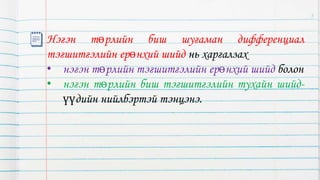 Нэгэн төрлийн биш шугаман дифференциал
тэгшитгэлийн ерөнхий шийд нь харгалзах
• нэгэн төрлийн тэгшитгэлийн ерөнхий шийд болон
• нэгэн төрлийн биш тэгшитгэлийн тухайн шийд-
үүдийн нийлбэртэй тэнцэнэ.